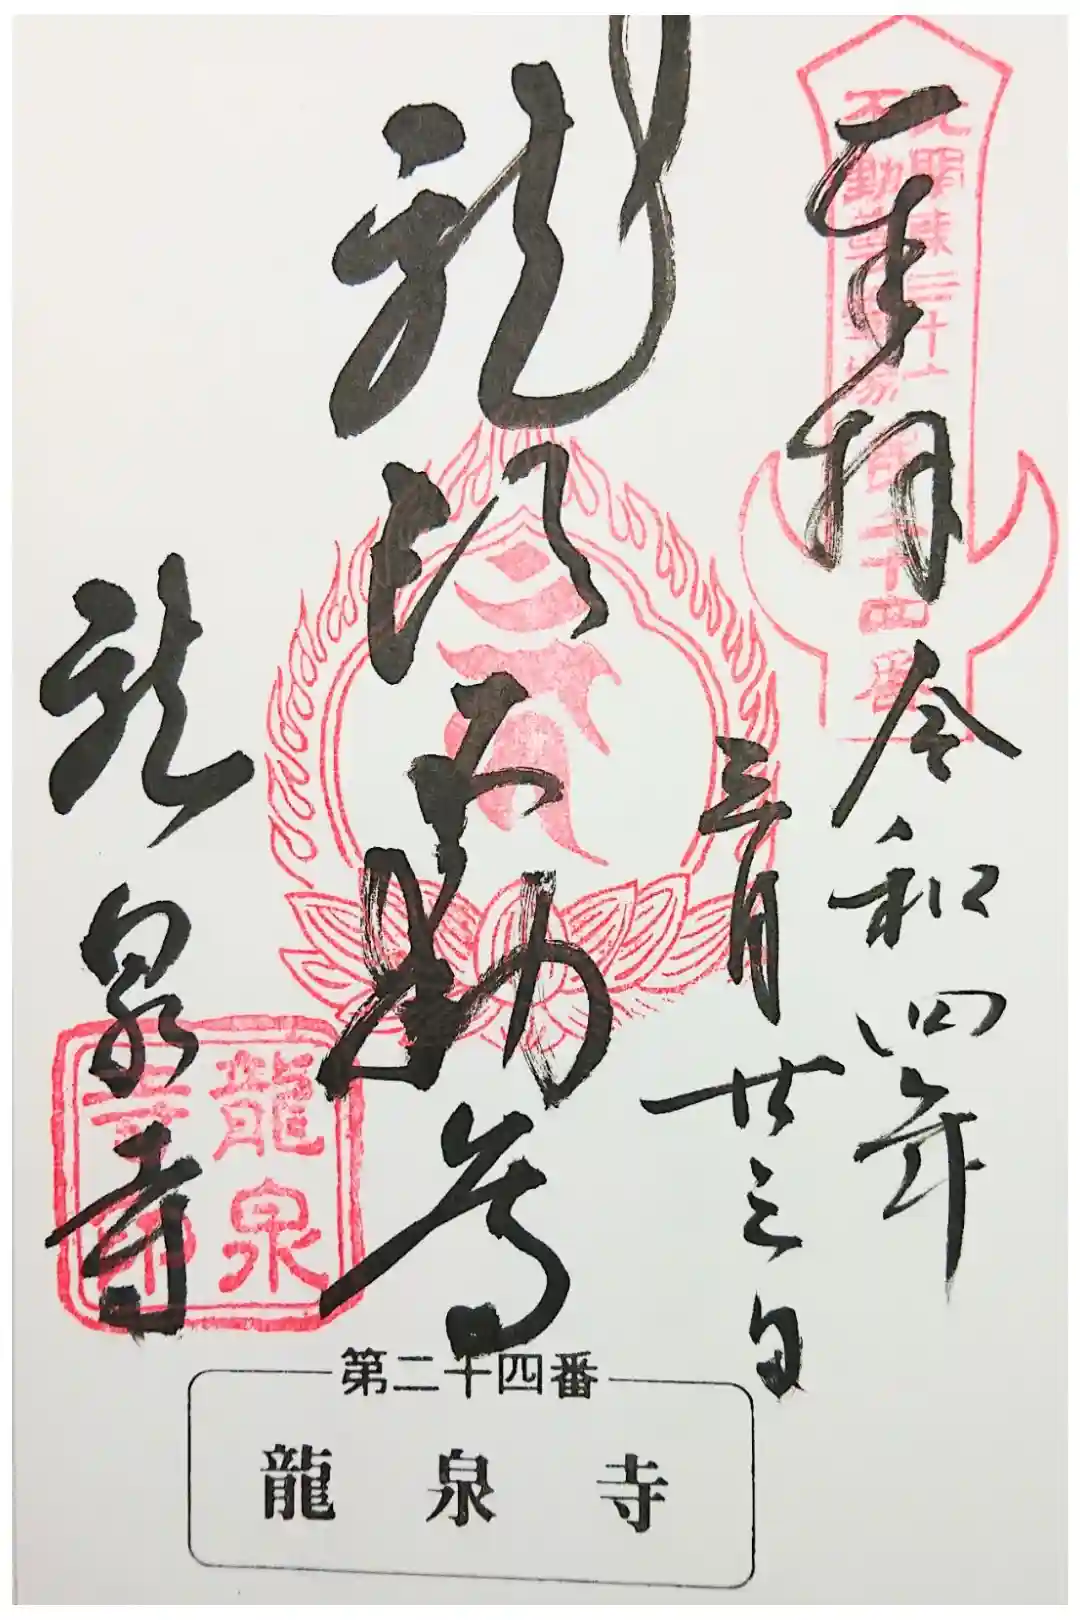 奉拝 令和四年
三月廿三日
北関東三十六
不動尊霊場
第二十四番
龍 不動尊
龍泉寺
龍泉
寺印
第二十四番
龍泉寺